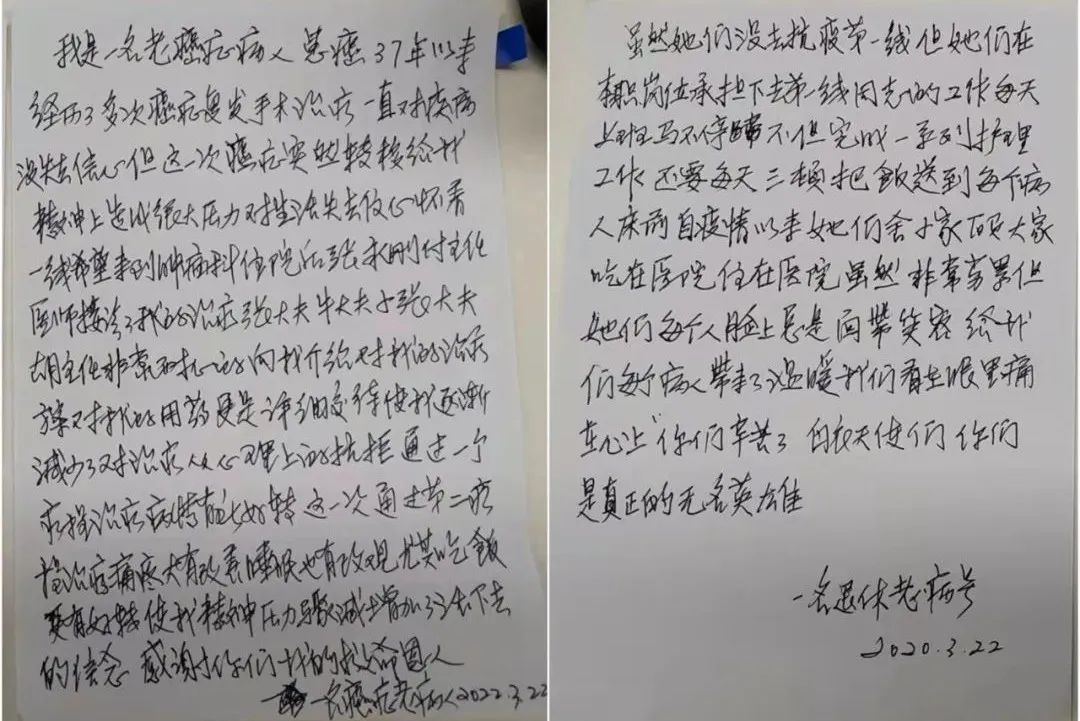 我是一名老癌症病人患癌37年以来
经历了多次癌症复发手术治疗一直对疾病
没失去信心但这一次癌症突然转移给我
精神上造成很大压力对生活失去信心怀着
一线希望来到肿瘤科住院后张永刚付主任
医师接诊了我的治疗张大夫牛大夫小张大夫
胡主任非常耐心的向我介绍对我的治疗
方案对我的用药更是详细交待使我逐渐
减少了对治疗从心理上的抗拒通过一个
疗程治疗病情有好转这一次通过第二疗
程治疗疼痛大有改善睡眠也有改观尤其吃飯
更有好转使我精神压力骤减增加了活下去
的信念感谢你们我的救命恩人
一名癌症老病人2022.3.22
虽然她们没去抗疫第一线但她们在
本职岗位承担下去第一线同志的工作每天
上班马不停蹄不但完成一系列护理
工作还要每天三顿把飯送到每个病
人床前自疫情以来她们舍小家顾大家
吃在医院住在医院虽然非常劳累但
她们每个人脸上总是面带笑容给我
们每个病人带来了温暖我们看在眼里痛
在心上"你们辛苦了白衣天使们你们
是真正的无名英雄
一名退休老病号
2020.3.22